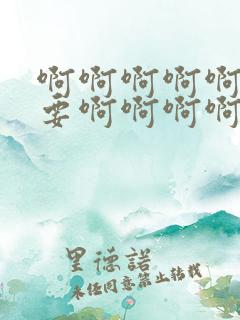 啊啊啊啊啊
要啊啊啊啊
里德諾
未经同意禁止转载